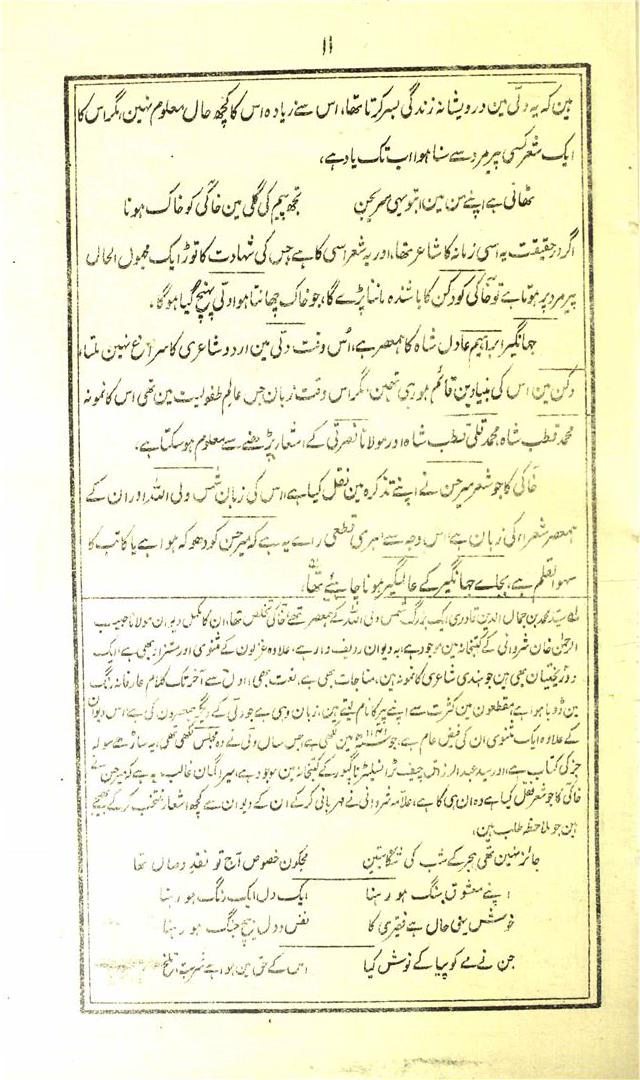 ۱۱
ہین کہ یہ دلّی مین درویشانہ زندگی بسر کرتا تھا، اس سے زیادہ اس کا کچھ حال معلوم نہین، مگر اس کا
ایک شعر کسی پیر مرد سے سنا ہوا اب تک یاد ہے،
ٹھانی ہے اپنے من مین اتو یہی سریجن تجھ پیم کی گلی مین خاکی کو خاک ہونا
اگر درحقیقت یہ اسی زمانہ کا شاعر تھا، اور یہ شعر اسی کا ہے جس کی شہادت کا توڑ ایک مجہول الحال
پیر مرد پر ہوتا ہے تو خاکی کو دکن کا باشندہ ماننا پڑے گا، جو خاک چھانتا ہوا دلّی پہنچ گیا ہوگا،
جہانگیر ابراہیم عادل شاہ کا ہمعصر ہے، اُس وقت دلّی مین اردو شاعری کا سراغ نہین ملتا،
دکن مین اس کی بنیادین قائم ہو رہی تھین، مگر اس وقت زبان جس عالم طفولیت مین تھی اس کا نمونہ
محمد قطب شاہ، محمد قلی قطب شاہ اور مولانا نصرتی کے اشعار پڑھنے سے معلوم ہو سکتا ہے،
خاکی کا جو شعر میر حسن نے اپنے تذکرہ مین نقل کیا ہے، اس کی زبان شمس ولی اللہ اور ان کے
ہمعصر شعراء کی زبان ہے، اس وجہ سے میری قطعی رائے یہ ہے کہ میر حسن کو دھوکہ ہوا ہے یا کاتب کا
سہو القلم ہے، بجاے جہانگیر کے عالمگیر ہونا چاہئے تھا،
سید محمد بن جمال الدین قادری ایک بزرگ شمس ولی اللہ کے ہمعصر تھے، خاکی تخلص تھا، ان کا مکمل دیوان مولانا حبیب
الرحمٰن خان شروانی کے کتبخانہ مین موجود ہے، یہ دیوان ردیف وار ہے، علاوہ غزلون کے مثنوی اور مستزاد بھی ہے، ایک
دو ریختیان بھی ہین جو ہندی شاعری کا نمونہ ہین، مناجات بھی ہے، نعت بھی، اول سے آخر تک کلام عارفانہ رنگ
مین ڈوبا ہوا ہے، مقطعون مین کثرت سے اپنے پیر کا نام لیتے ہین، زبان وہی ہے جو ولی کے دیگر ہمعصرون کی ہے، اس دیوان
کے علاوہ ایک مثنوی ان کی فیض عام ہے، جو مین لکھی ہے، جس سال ولی نے دہ مجلس لکھی تھی، یہ ساڑھے سولہ
جز کی کتاب ہے، اور سید عبد الرزاق چیف ٹرانسلیٹر ناگپور کے کتبخانہ مین موجود ہے، میرا گمان غالب یہ ہے کہ میر حسن نے
خاکی کا جو شعر نقل کیا ہے وہ ان ہی کا ہے، علامہ شروانی نے مہربانی کرکے ان کے دیوان سے کچھ اشعار منتخب کرکے بھیجے
ہین جو ملاحظہ طلب ہین،
جائز نہین تھی ہجر کے شب کی مجکون خصوص آج تو نقدِ وصال تھا
اپنے معشوق سنگ ہو رہنا ایک دل ایک رنگ ہو رہنا
خوش یہی حال ہے فقیری کا نفس و دل بیچ جنگ ہو رہنا
جن نے مے کو پیا کے نوش کیا اس کے حق مین ہوا ہے شربت تلخ